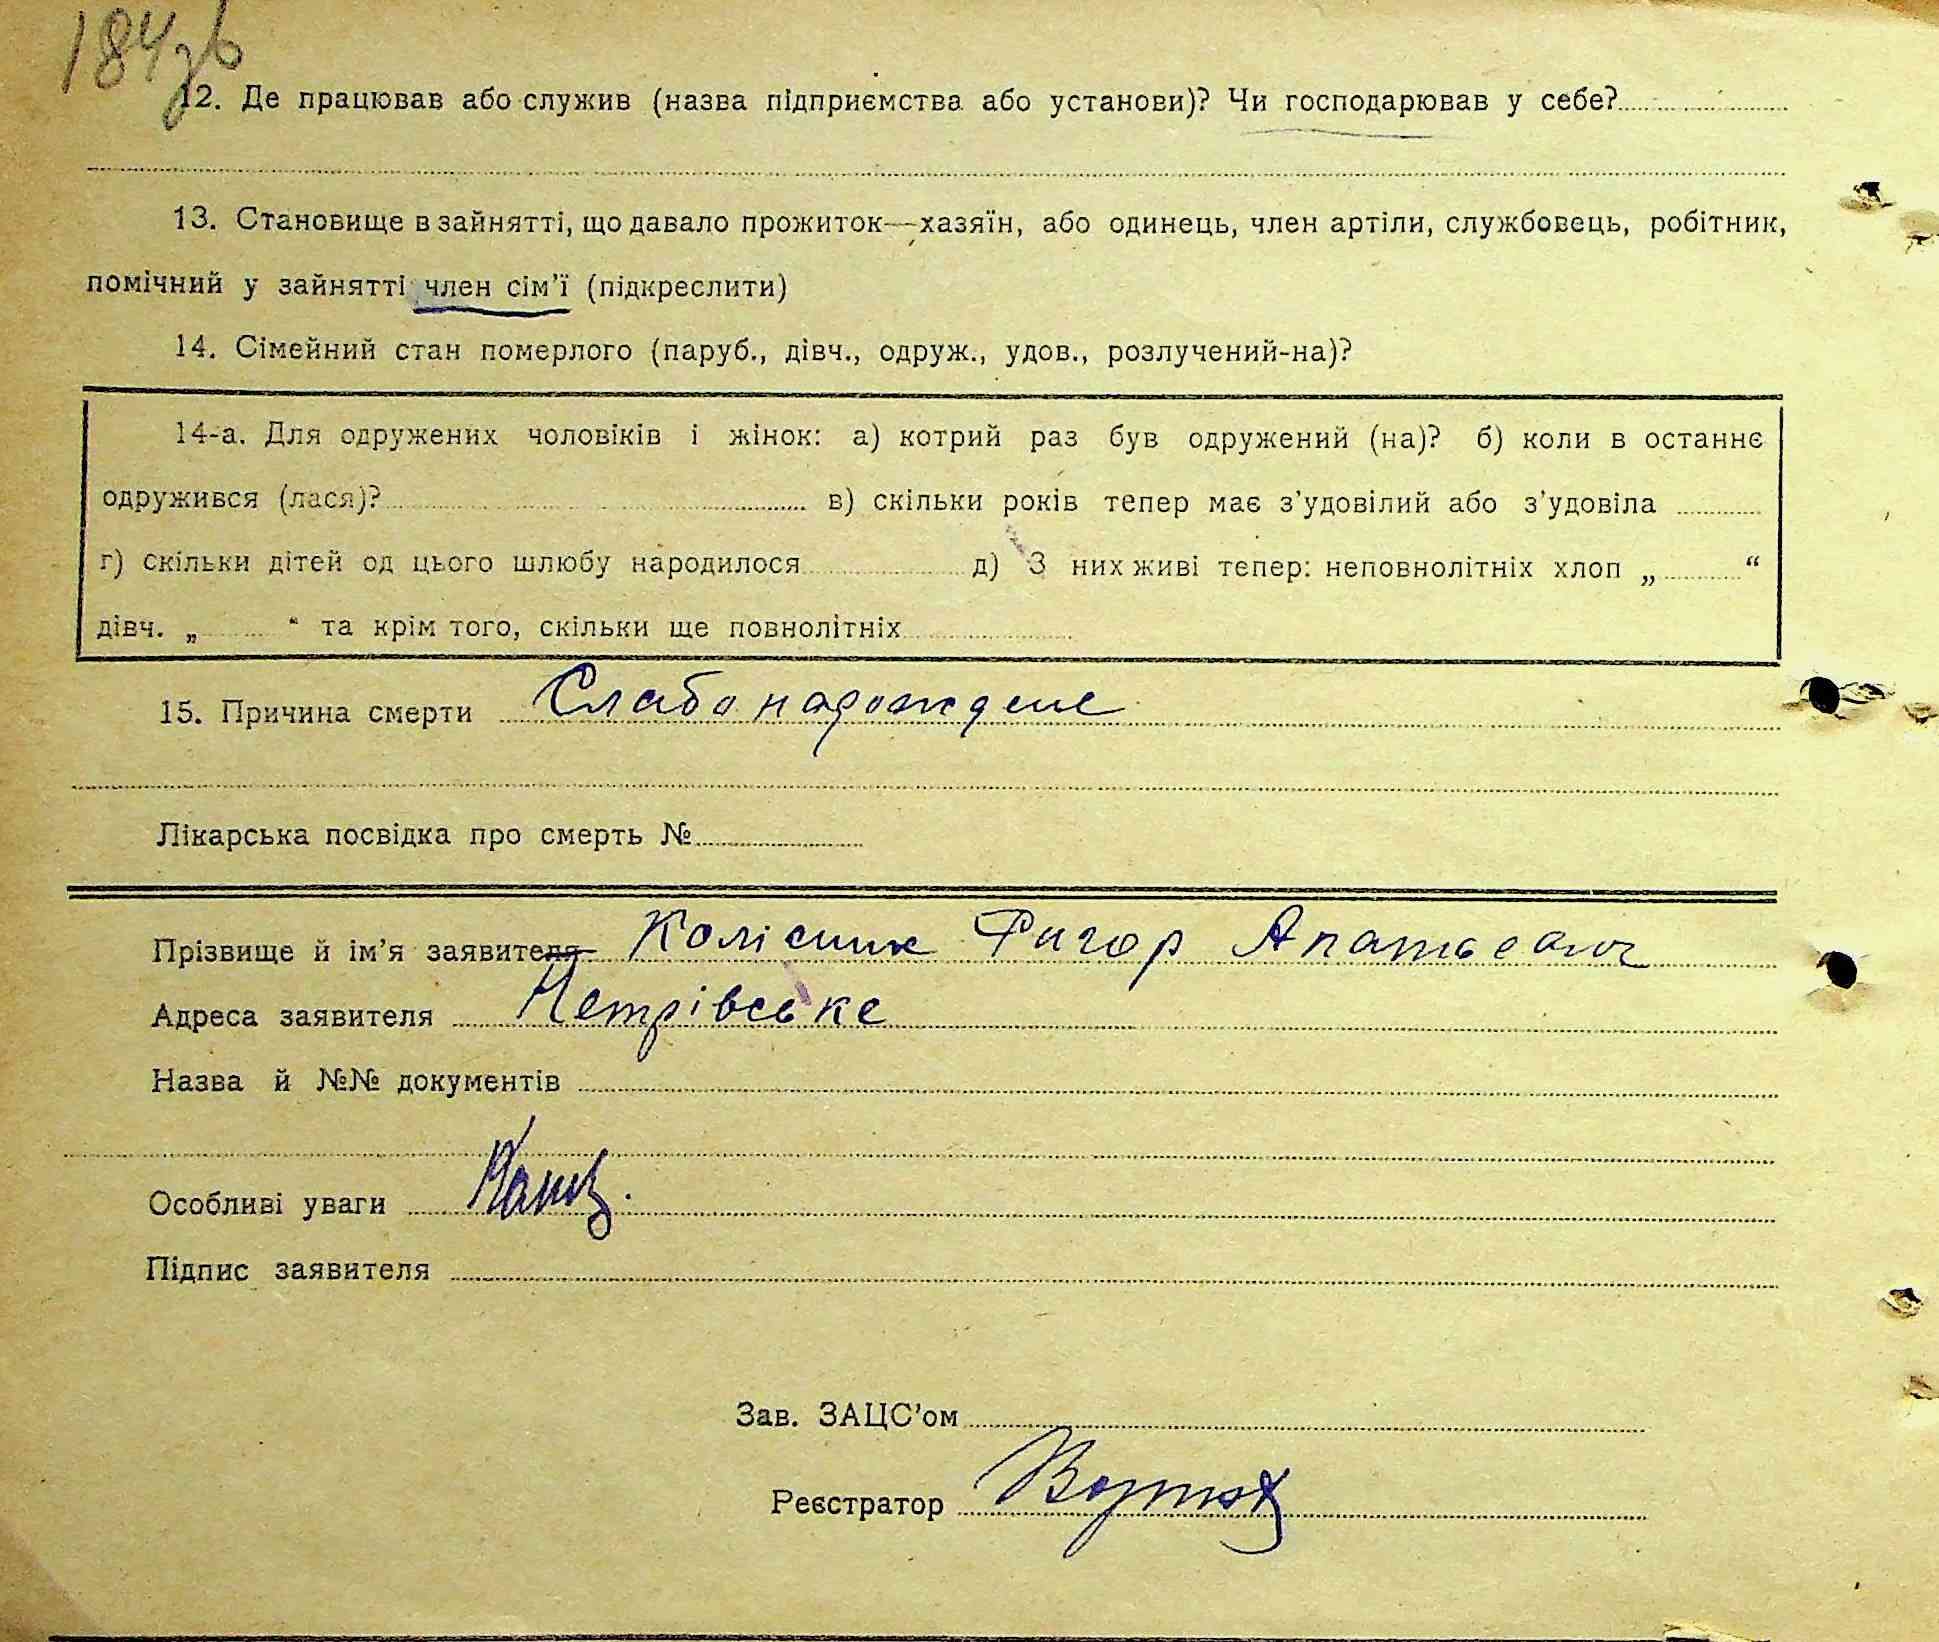 184зв
12. Де працював або служив (назва підприємства або установи)? Чи господарював у себе?
13. Становище в зайнятті, що давало прожиток—хазяїн, або одинець, член артіли, службовець, робітник,
помічний у зайнятті член сім'ї (підкреслити)
14. Сімейний стан померлого (паруб., дівч., одруж., удов., розлучений-на)?
14-а. Для одружених чоловіків і жінок: а) котрий раз був одружений (на)? б) коли в останнє
одружився (лася)? в) скільки років тепер має з'удовілий або з'удовіла
г) скільки дітей од цього шлюбу народилося д) З них живі тепер: неповнолітніх хлоп „ “
дівч. „ “ та крім того, скільки ще повнолітніх
15. Причина смерти Слабо народждене
Лікарська посвідка про смерть №
Прізвище й ім'я заявителя Колісник
Адреса заявителя Петрівське
Назва й №№ документів
Особливі уваги
Підпис заявителя
Зав. ЗАЦС'ом
Реєстратор